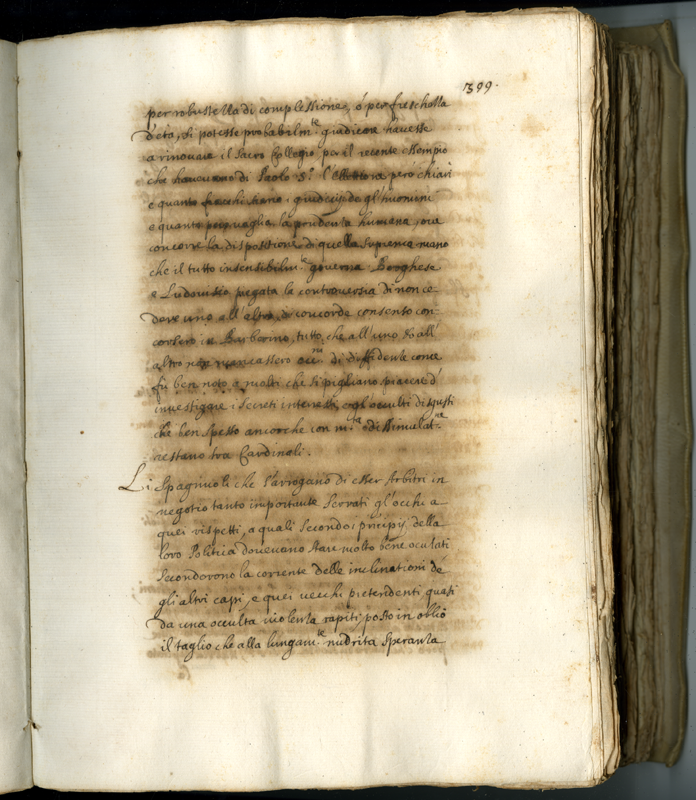 399.
per robustezza di complessione, ò per freschezza
d'età, si potesse probabilm.te giudicar havesse
a rinovare il Sacro Collegio, per il recente essempio
che havevano di Paolo
e quanto siano i giudicij de gl'huomini
e quanto poco vaglia la prudenza humana, ove
concorre la dispositione di quella suprema mano
che il tutto insensibilm.te governa. Borghese
e Ludovisio piegata la controversia di non ce-
dere uno all'altro di concorde consenso con-
corsero in Barberino, tutto che all'uno & all'
altro non mancassero di diffidenle come
fù ben noto a molti che si pigliano piacere d'
investigare i Secreti interessi, e gl'occulti disgusti
che ben spesso ancorche con m.ta dissimulat.ne
restano tra Cardinali.
Li Spagnuoli che s'arrogano di esser Arbitri in
negotio tanto importante serrati gl'occhi a
quei rispetti, a quali secondo i prícipij della
loro Politica dovevano stare molto bene oculati
secondorono la corrente delle inclinationi de
gli altri capi, e quei vecchi pretendenti quasi
da una occulta violenza rapiti, posto in oblio
il taglio che alla lungam.te nudrita speranza